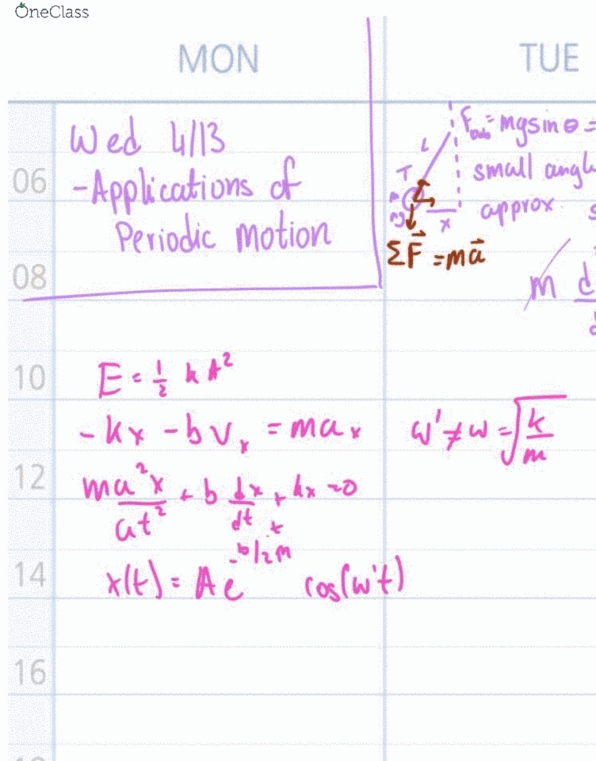 OneClass
MON
TUE
Wed 4/13
-Applications of
Periodic motion
06
08
10
12
14
16
F = mg sin θ =
small angl
approx.
L
T
mg
x
ΣF⃗ = ma⃗
m d
E = 1/2 k A²
-kx - b vₓ = maₓ
ω' ≠ ω = √(k/m)
ma²x/at² + b dx/dt + kx = 0
x(t) = A e^(-b/2m t) cos(ω't)